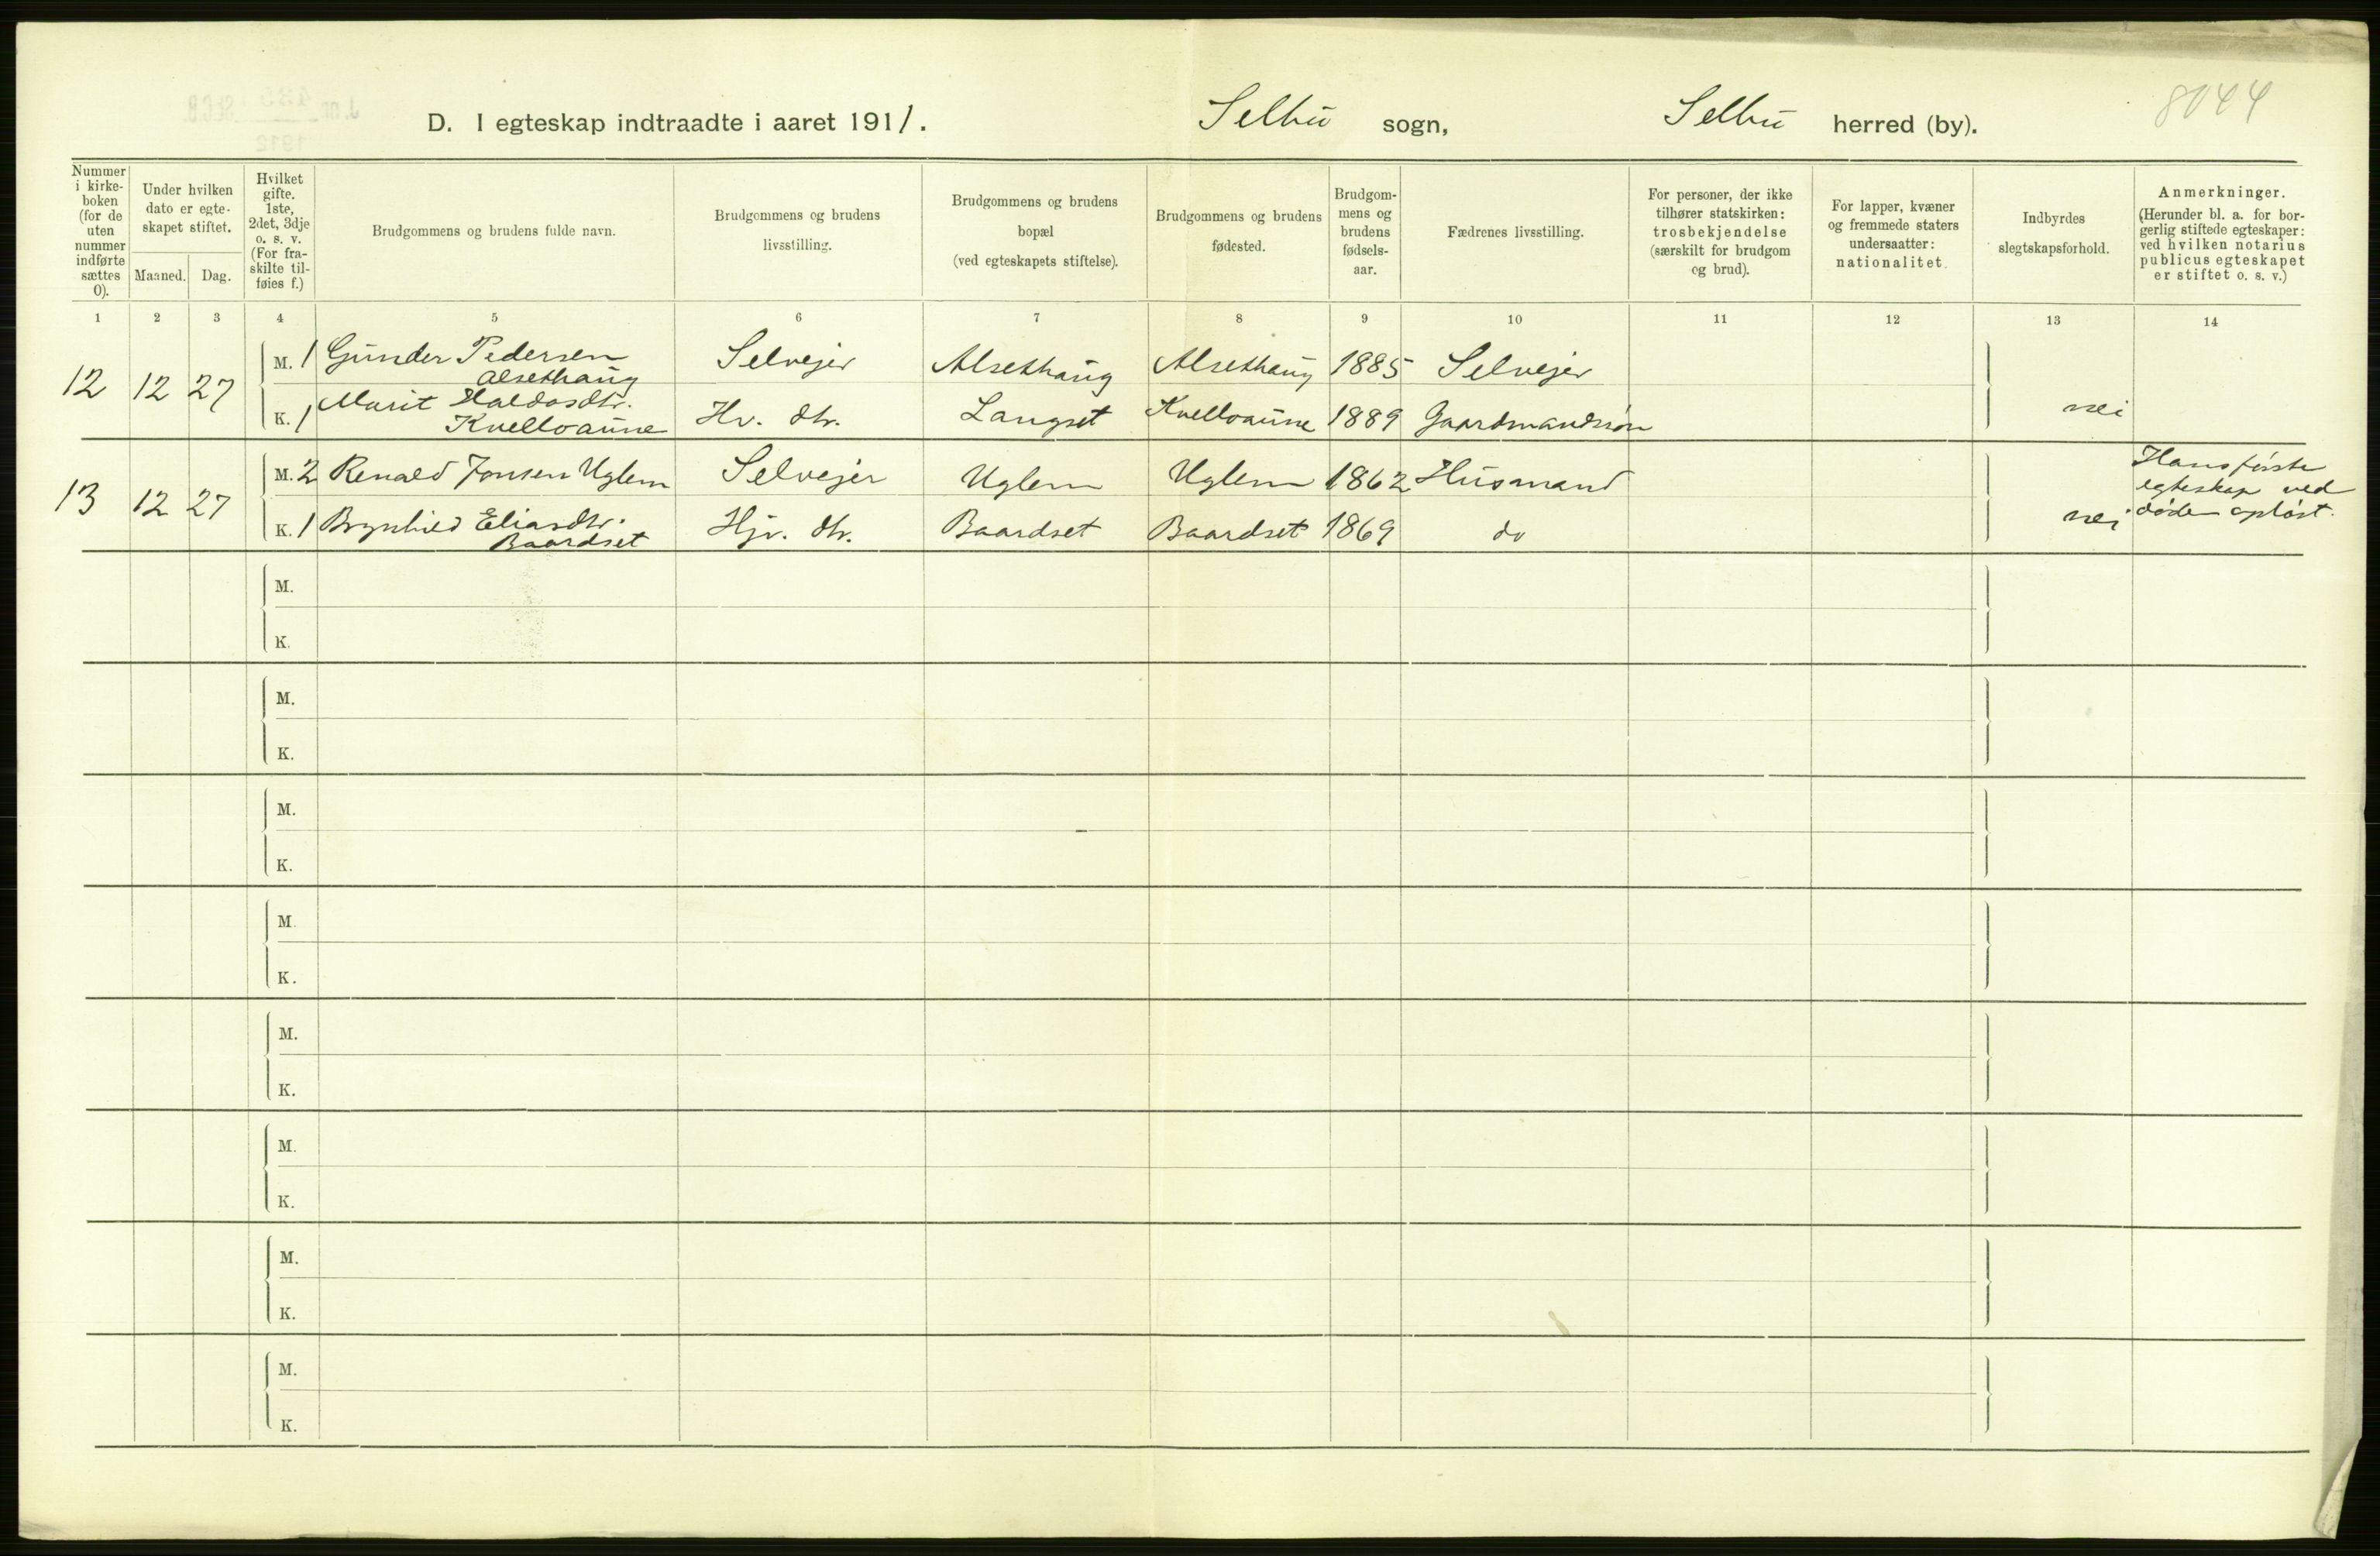 8044
D. I egteskap indtraadte i aaret 1911. Selbu sogn, Selbu herred (by).
Nummer i kirke-boken (for de uten nummer indførte sættes 0).
Under hvilken dato er egte-skapet stiftet.
Maaned. Dag.
Hvilket gifte. 1ste, 2det, 3dje o. s. v. (For fra-skilte til-føies f.)
Brudgommens og brudens fulde navn.
Brudgommens og brudens livsstilling.
Brudgommens og brudens bopæl (ved egteskapets stiftelse).
Brudgommens og brudens fødested.
Brudgom-mens og brudens fødsels-aar.
Fædrenes livsstilling.
For personer, der ikke tilhører statskirken: trosbekjendelse (særskilt for brudgom og brud).
For lapper, kvæner og fremmede staters undersaatter: nationalitet.
Indbyrdes slegtskapsforhold.
Anmerkninger. (Herunder bl. a. for bor-gerlig stiftede egteskaper: ved hvilken notarius publicus egteskapet er stiftet o. s. v.)
1 2 3 4 5 6 7 8 9 10 11 12 13 14
12 12 27 M. 1 Gunder Pedersen Alsethaug Selveier Alsethaug Alsethaug 1885 Selveier
K. 1 Marit Haldosdtr. Kvelloaune Hv. dtr. Langset Kvelloaune 1889 Gaardmandssøn nei
13 12 27 M. 2 Renald Jonsen Uglem Selveier Uglem Uglem 1862 Husmand
K. 1 Brynhild Eliasdtr. Baardset Hjv. dtr. Baardset Baardset 1869 do nei
Hans første
egteskap ved
døden opløst.
M.
K.
M.
K.
M.
K.
M.
K.
M.
K.
M.
K.
M.
K.
M.
K.